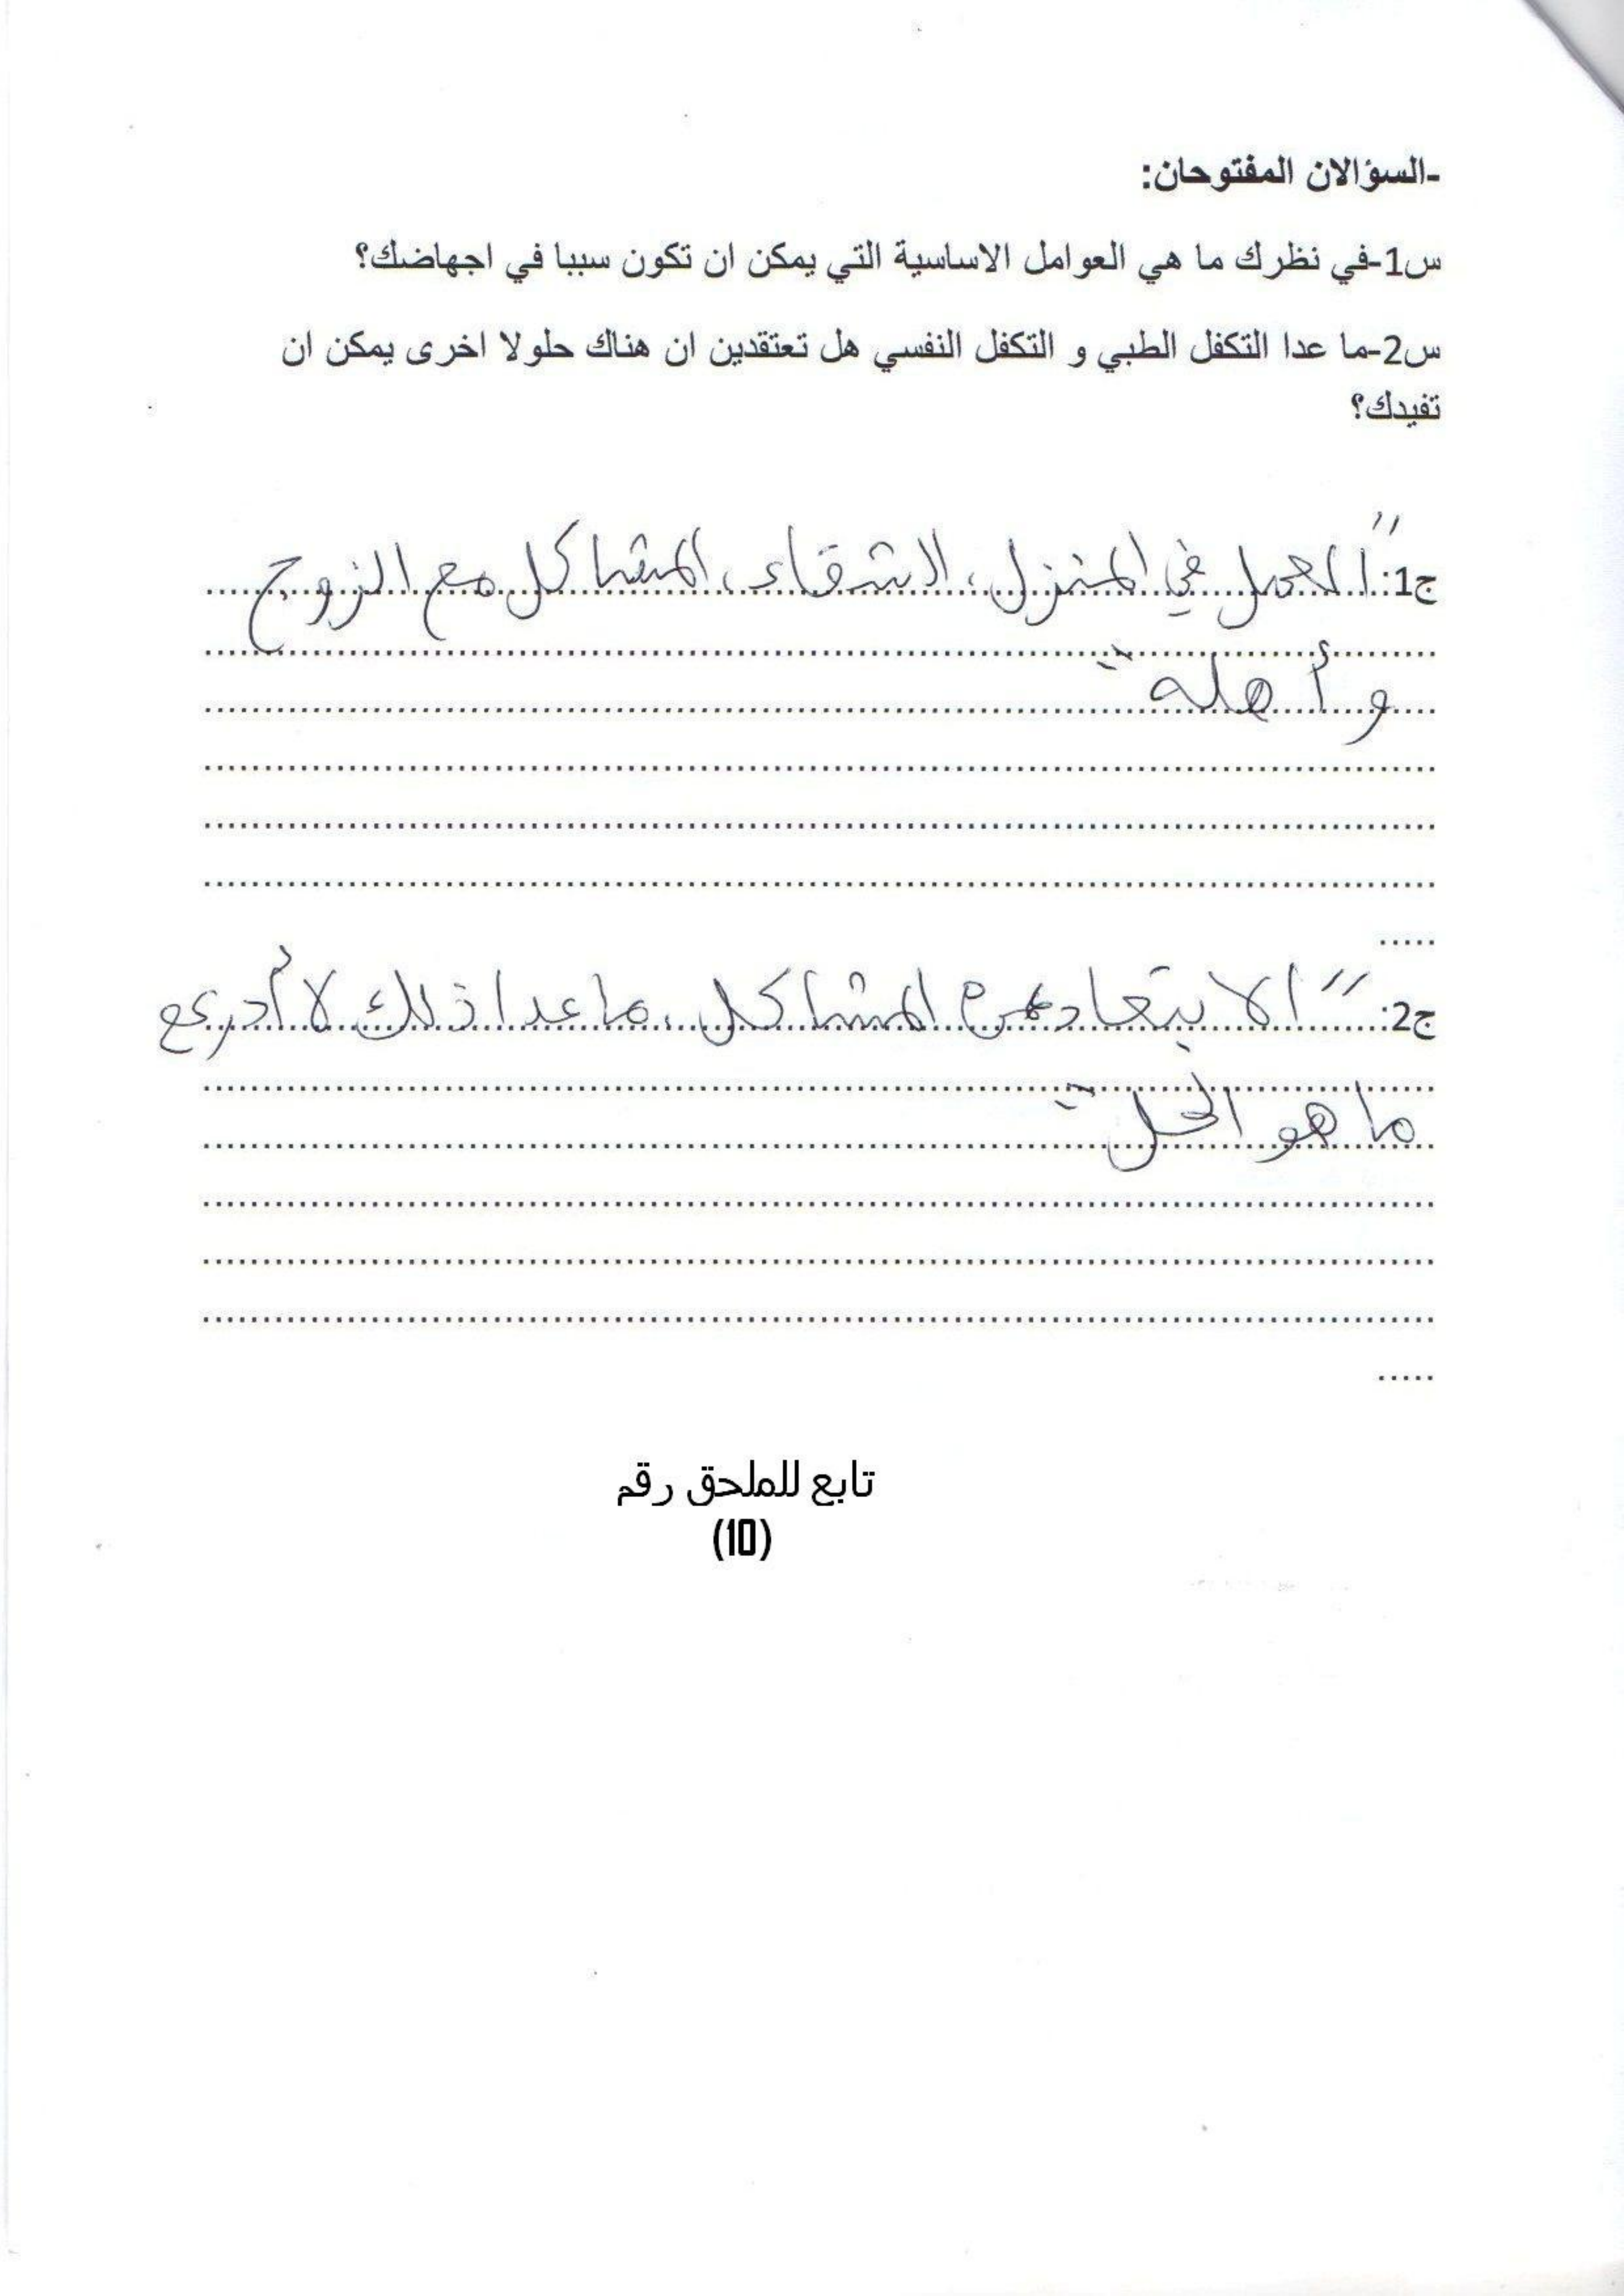 -السؤالان المفتوحان:
س1-في نظرك ما هي العوامل الاساسية التي يمكن ان تكون سببا في اجهاضك؟
س2-ما عدا التكفل الطبي و التكفل النفسي هل تعتقدين ان هناك حلولا اخرى يمكن ان
تفيدك؟
ج1: "العمل في المنزل، الشقاء، المشاكل مع الزوج
وأهله"
ج2: "الابتعاد عن المشاكل، ماعدا ذلك لا أدري
ما هو الحل"
تابع للملحق رقم
(10)